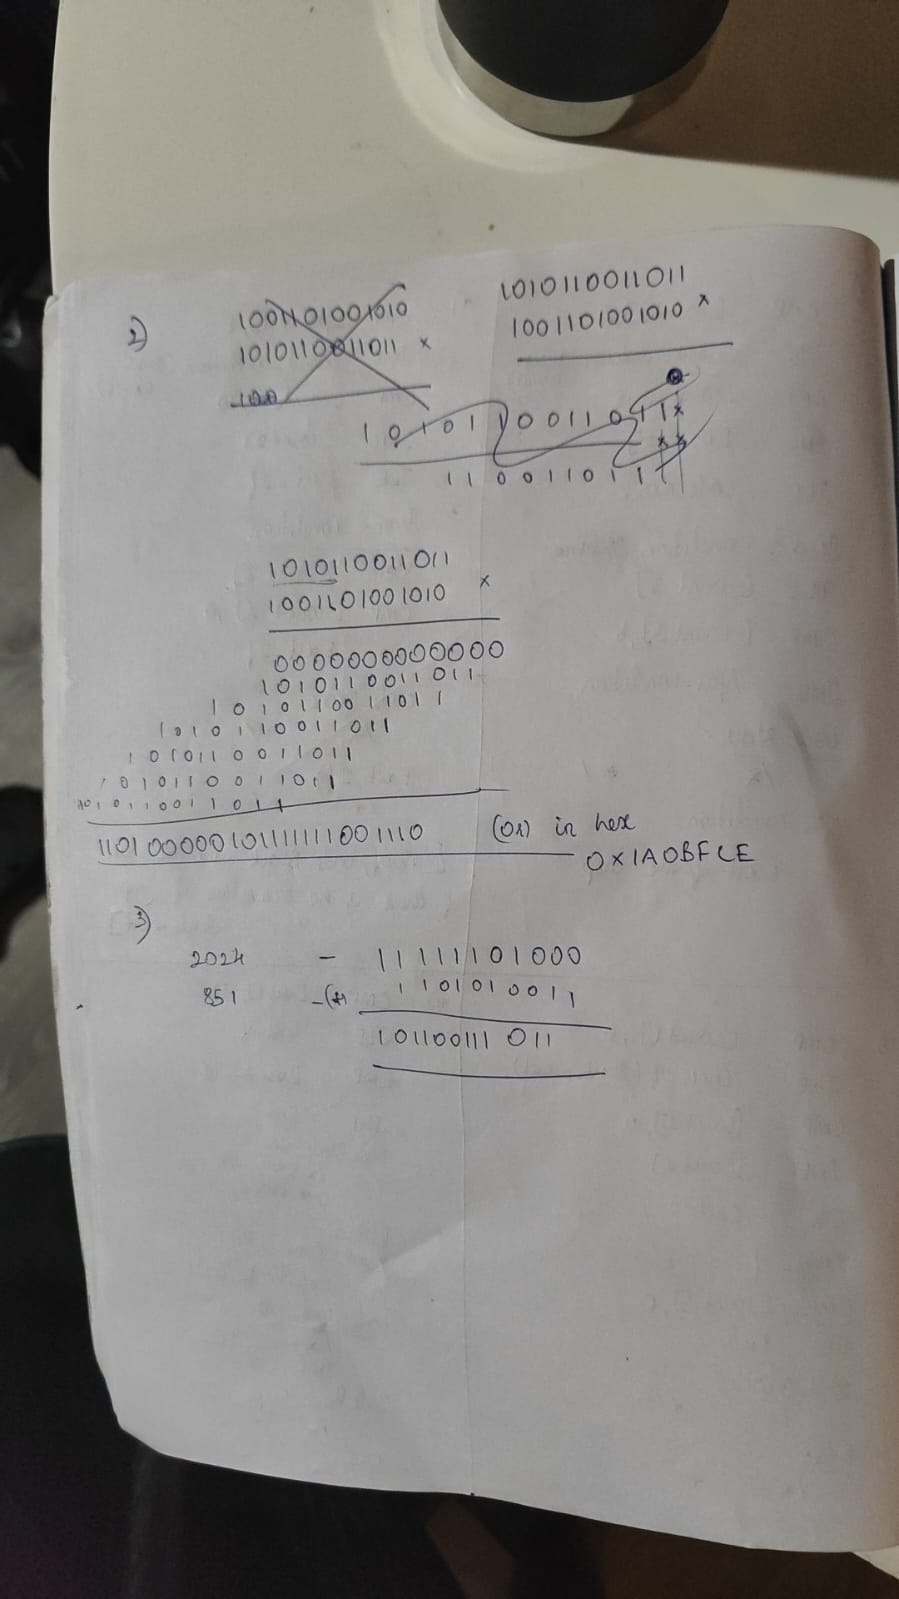 2)
1001101001010
1010110011011 x
100
1010110011011
1001101001010 x
1010110011011x
xx
110011011
1010110011011
1001101001010 x
0000000000000
1010110011011
1010110011011
1010110011011
1010110011011
1010110011011
1010110011011
1101000000101111111001110 (or) in hex
0X1A0BFCE
3)
2024 - 11111101000
851 - 1101010011
101100111 011